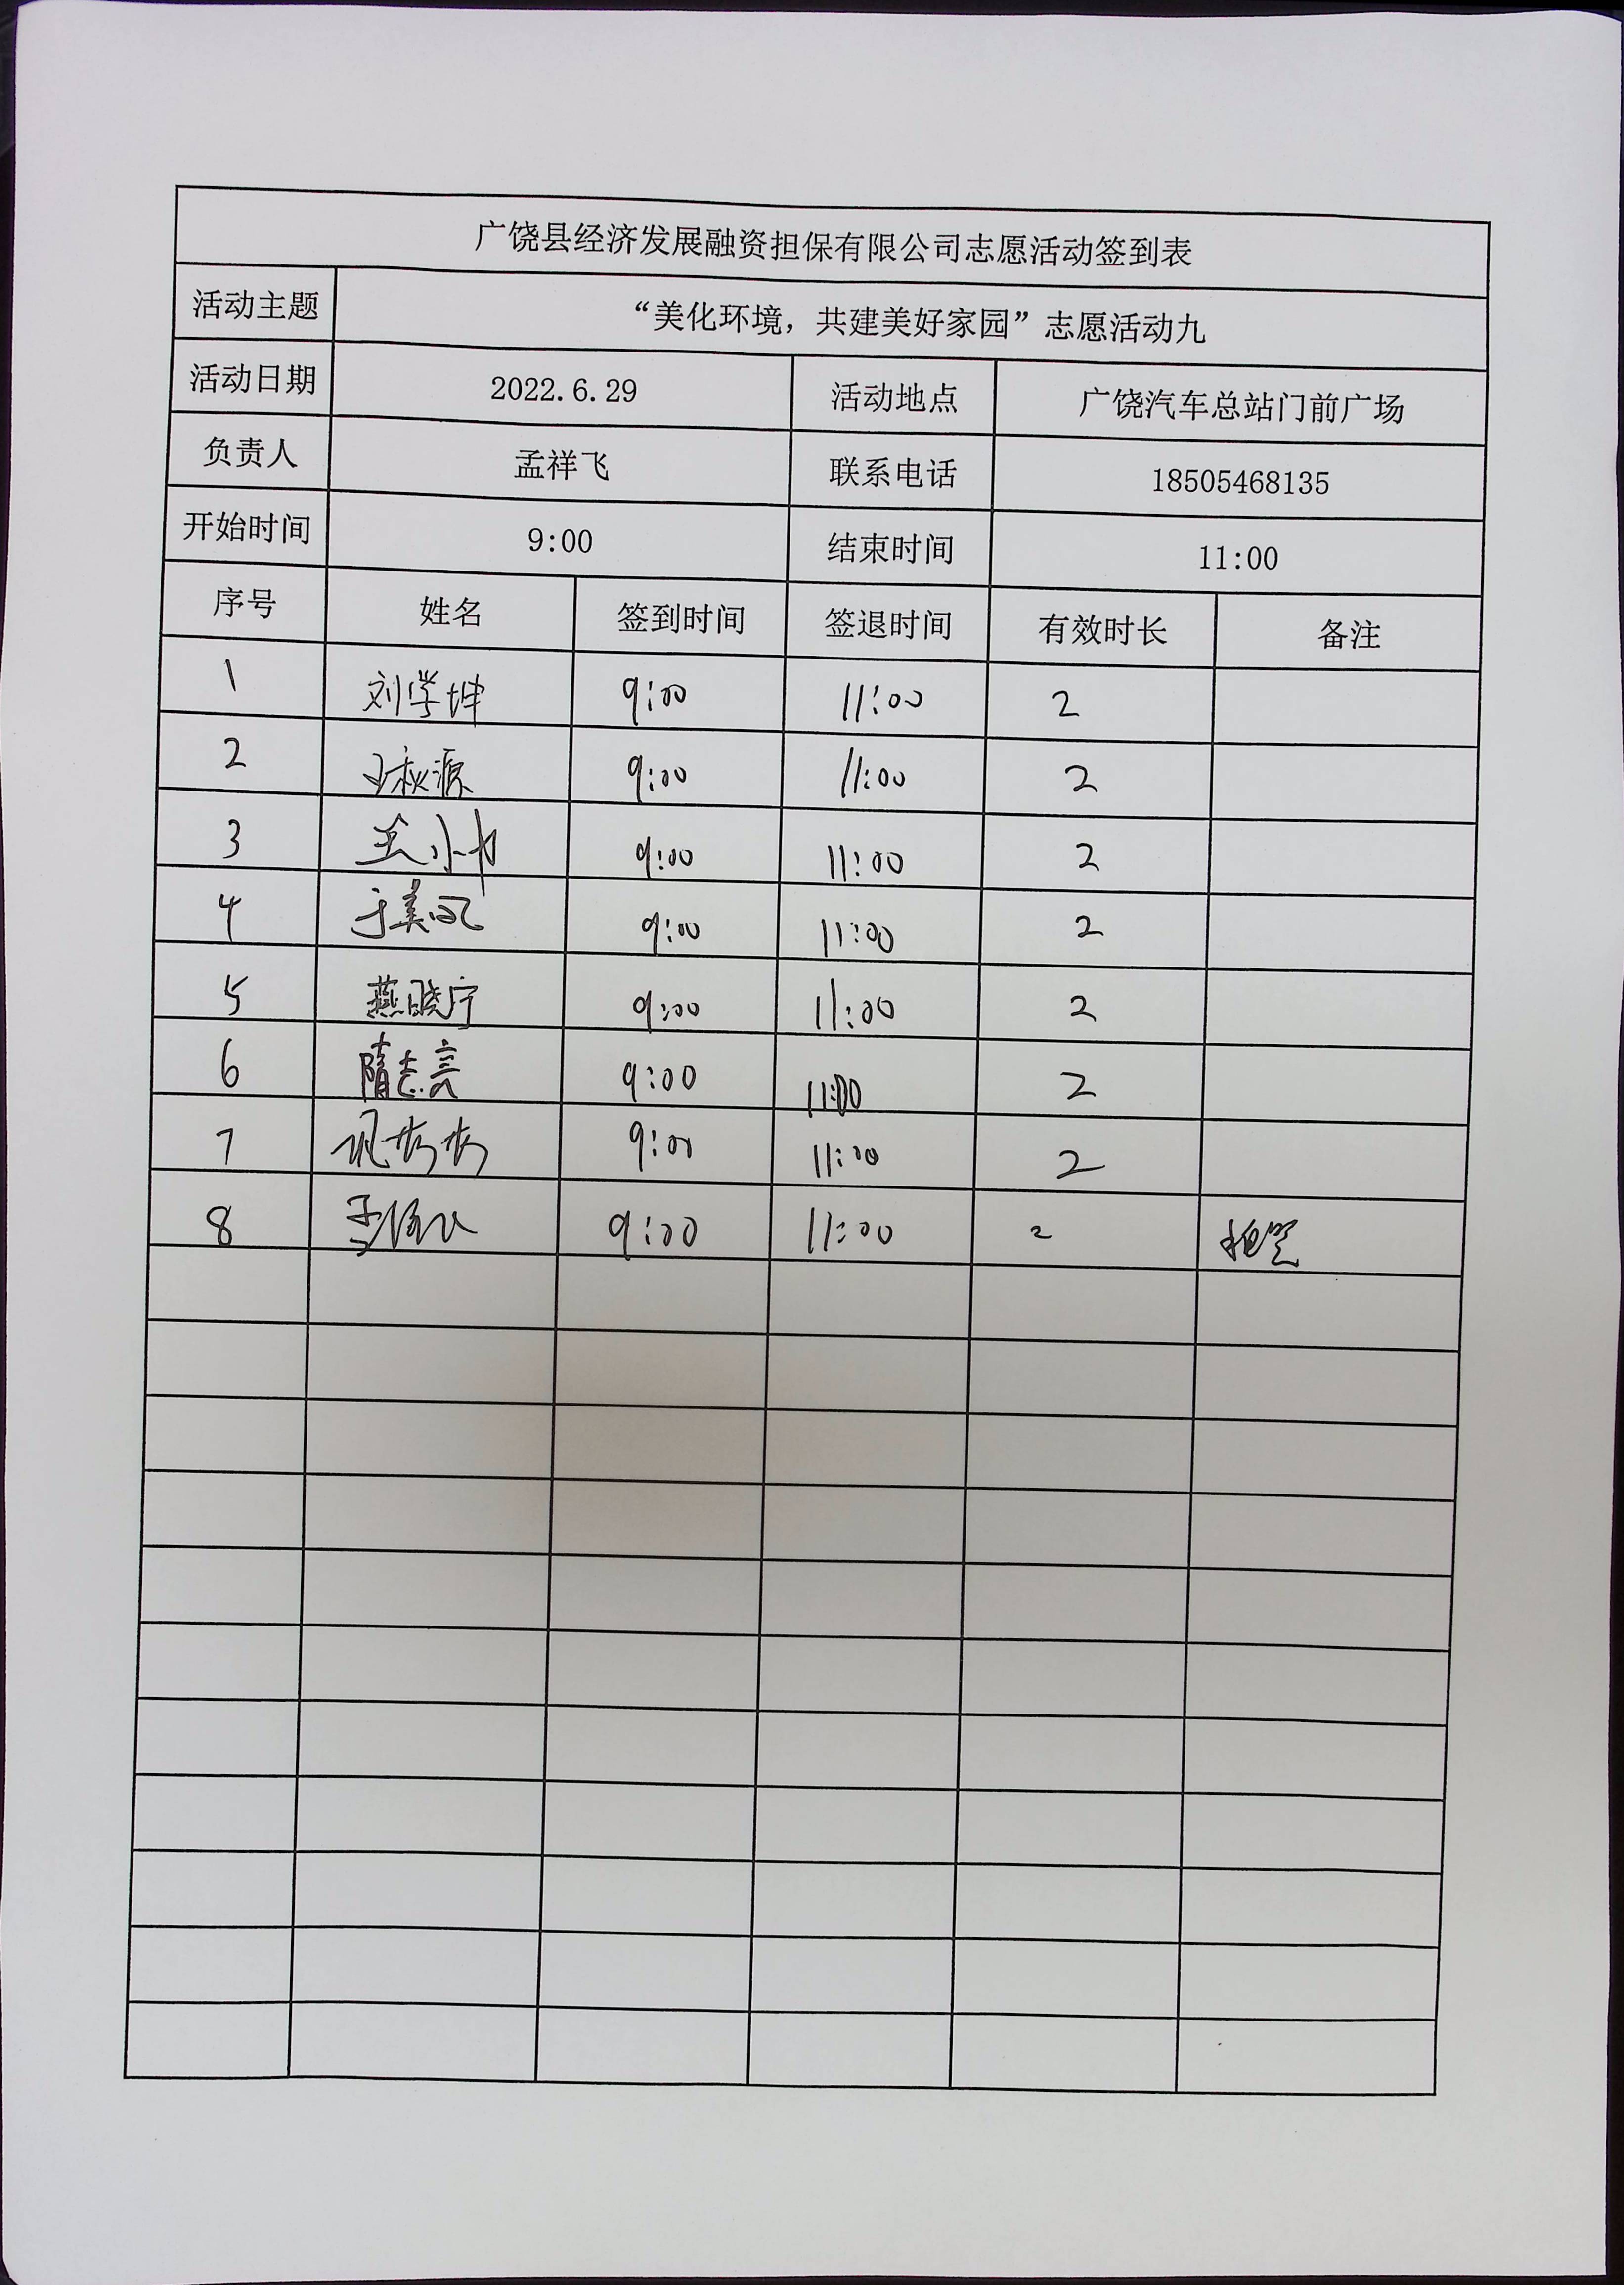 广饶县经济发展融资担保有限公司志愿活动签到表
活动主题 “美化环境，共建美好家园”志愿活动九
活动日期 2022.6.29 活动地点 广饶汽车总站门前广场
负责人 孟祥飞 联系电话 18505468135
开始时间 9:00 结束时间 11:00
序号 姓名 签到时间 签退时间 有效时长 备注
1 刘学坤 9:00 11:00 2
2 秋源 9:00 11:00 2
3 9:00 11:00 2
4 于美凤 9:00 11:00 2
5 燕晓宁 9:00 11:00 2
6 隋志亮 9:00 11:00 2
7 9:00 11:00 2
8 9:00 11:00 2